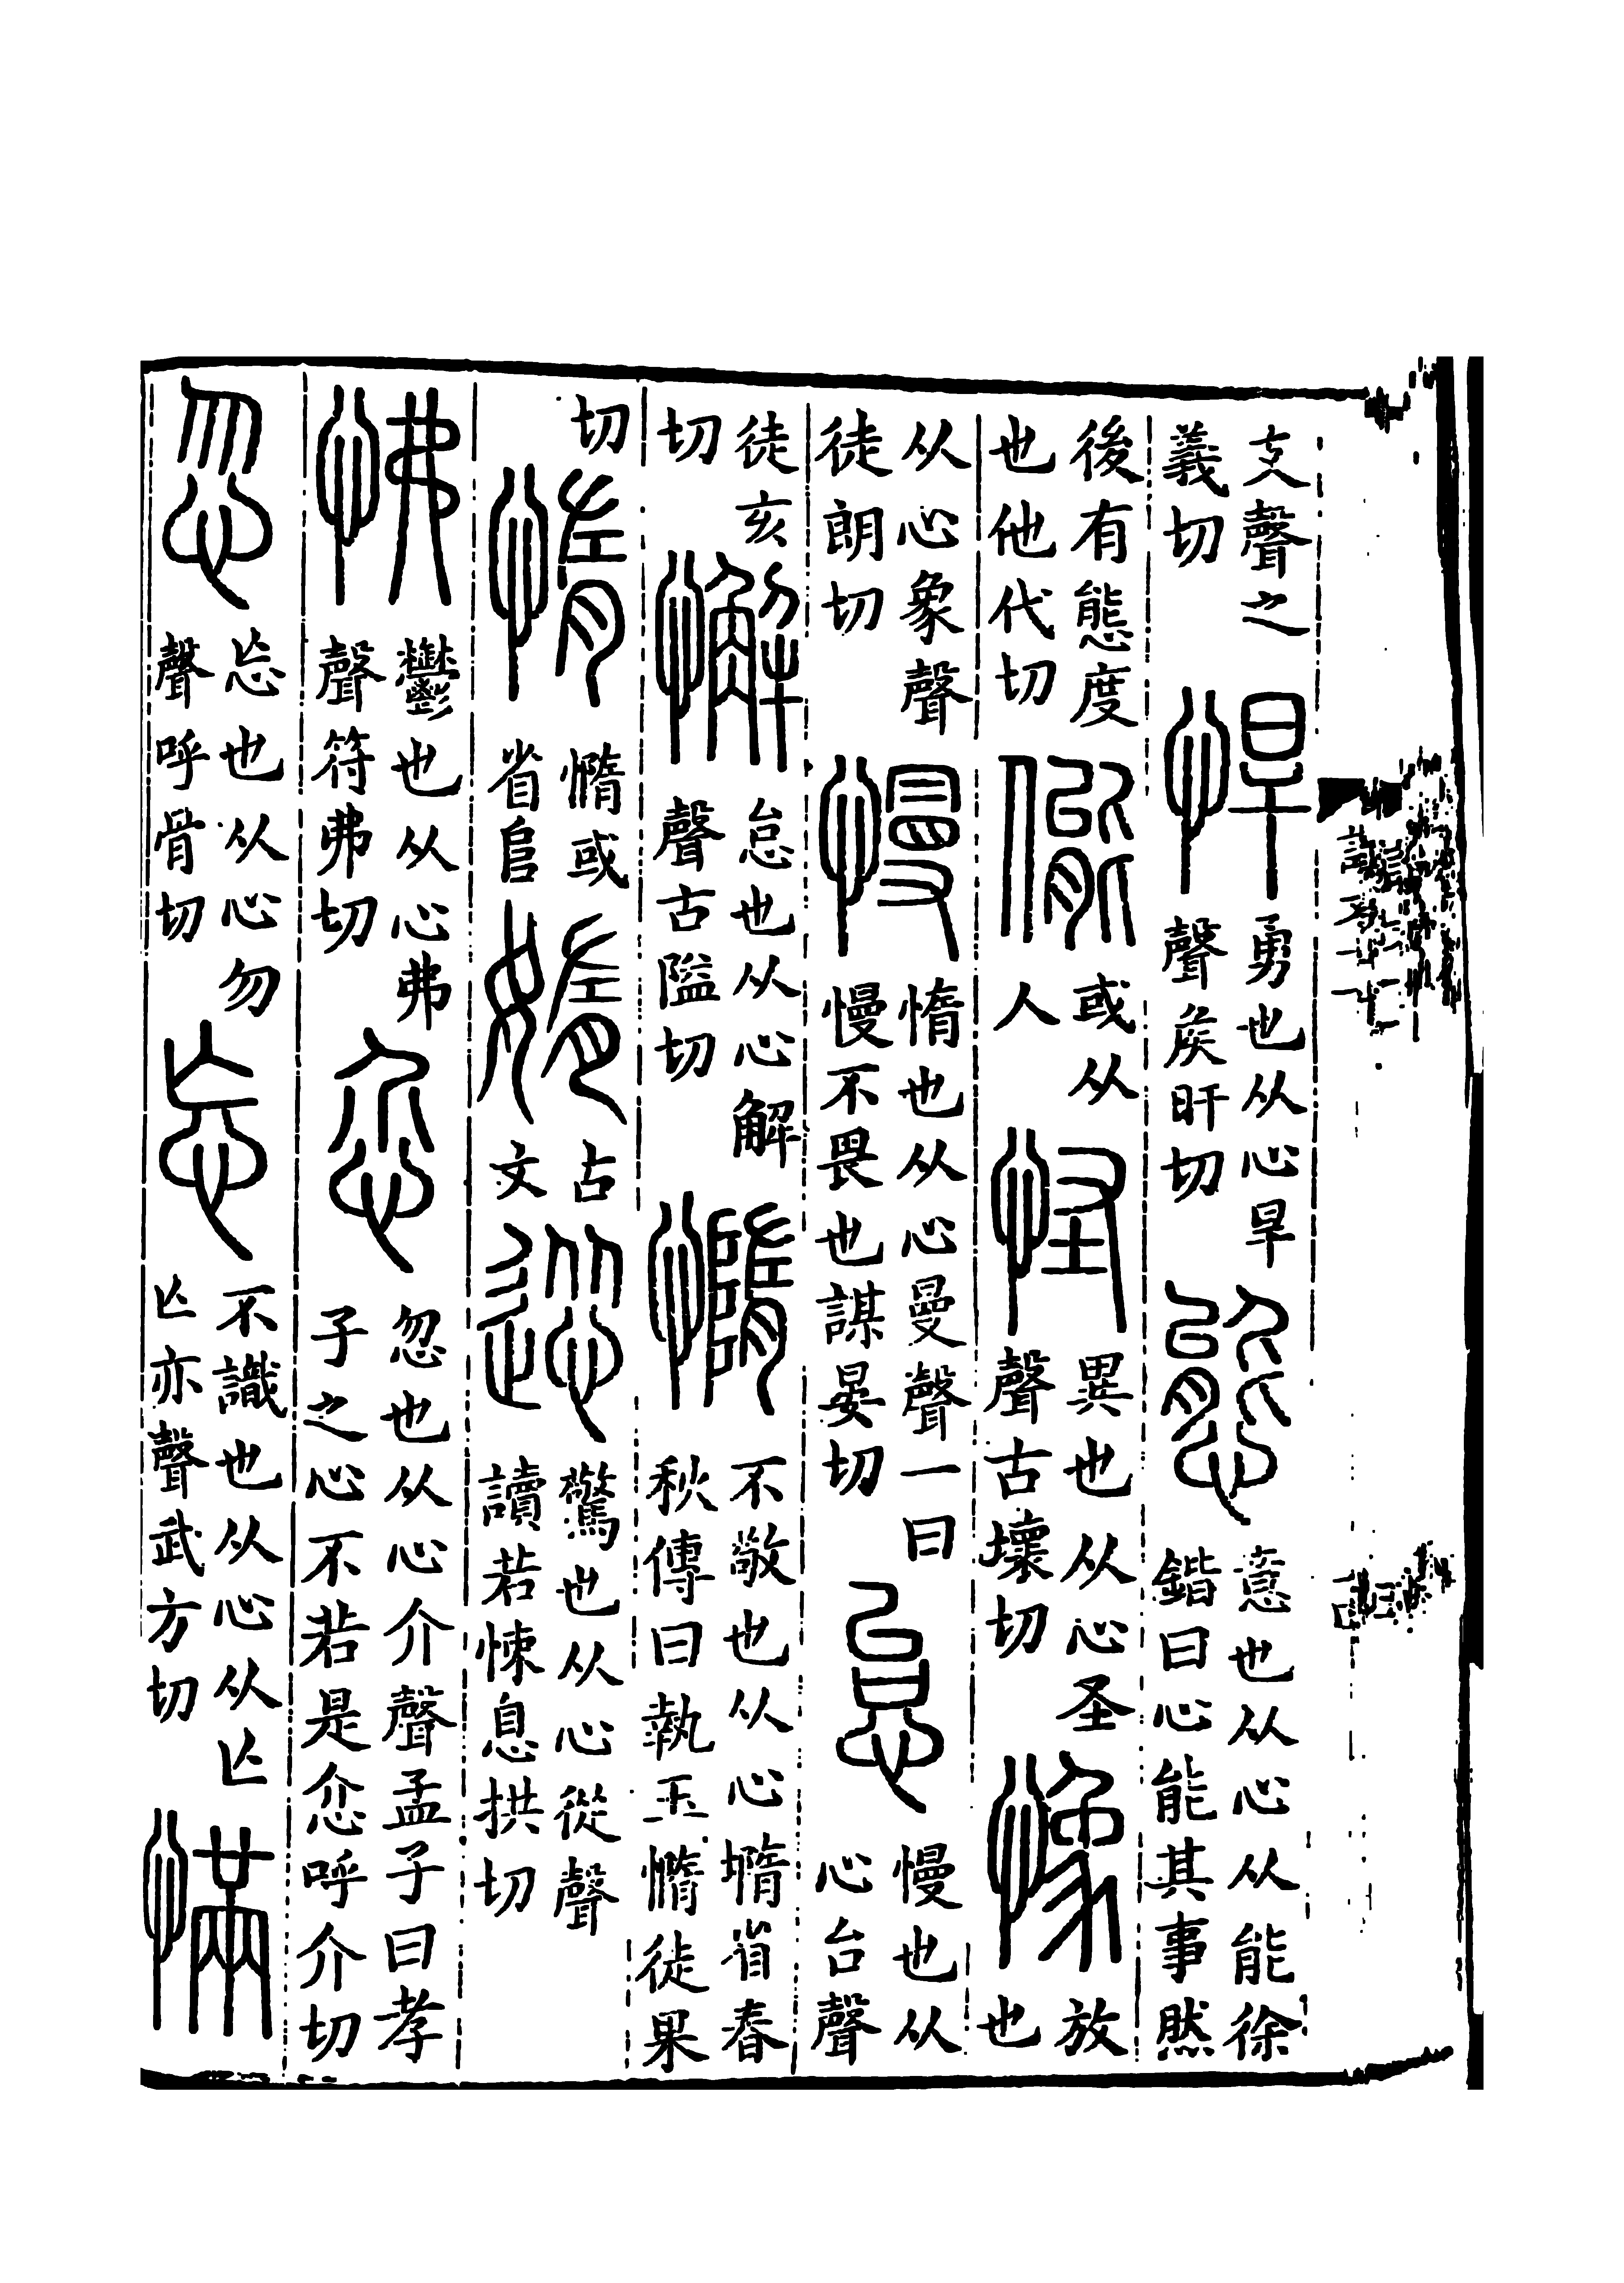 支聲之義切 悍 勇也从心旱聲矦旰切 態 意也从心从能徐鍇曰心能其事然
後有態度也他代切 㑷 或从人 怪 異也从心圣聲古壞切 𢠽 放也
从心象聲徒朗切 慢 惰也从心曼聲一曰慢不畏也謀晏切 怠 慢也从心台聲
徒亥切 懈 怠也从心解聲古隘切 憜 不敬也从心㙐省春秋傳曰執玉憜徒果
切 惰 憜或省𨸏 媠 古文 慫 驚也从心從聲讀若悚息拱切
怫 鬱也从心弗聲符弗切 忦 忽也从心介聲孟子曰孝子之心不若是忦呼介切
忽 忘也从心勿聲呼骨切 忘 不識也从心从亡亡亦聲武方切 慲